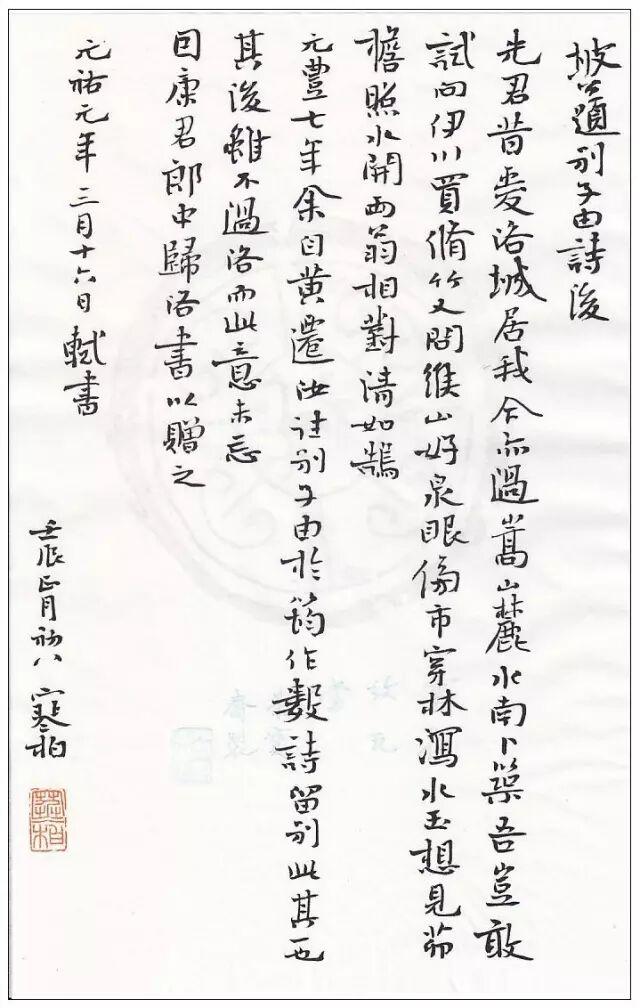 坡公題別子由詩後
先君昔愛洛城居我今亦過嵩山麓水南卜築吾豈敢
試向伊川買脩竹又聞緱山好泉眼傍市穿林瀉水玉想見茆
檐照水開兩翁相對清如鵠
元豐七年余自黃遷汝往別子由於筠作數詩留別此其一也
其後雖不過洛而此意未忘
因康君郎中歸洛書以贈之
元祐元年三月十六日軾書
壬辰正月初八寒柏